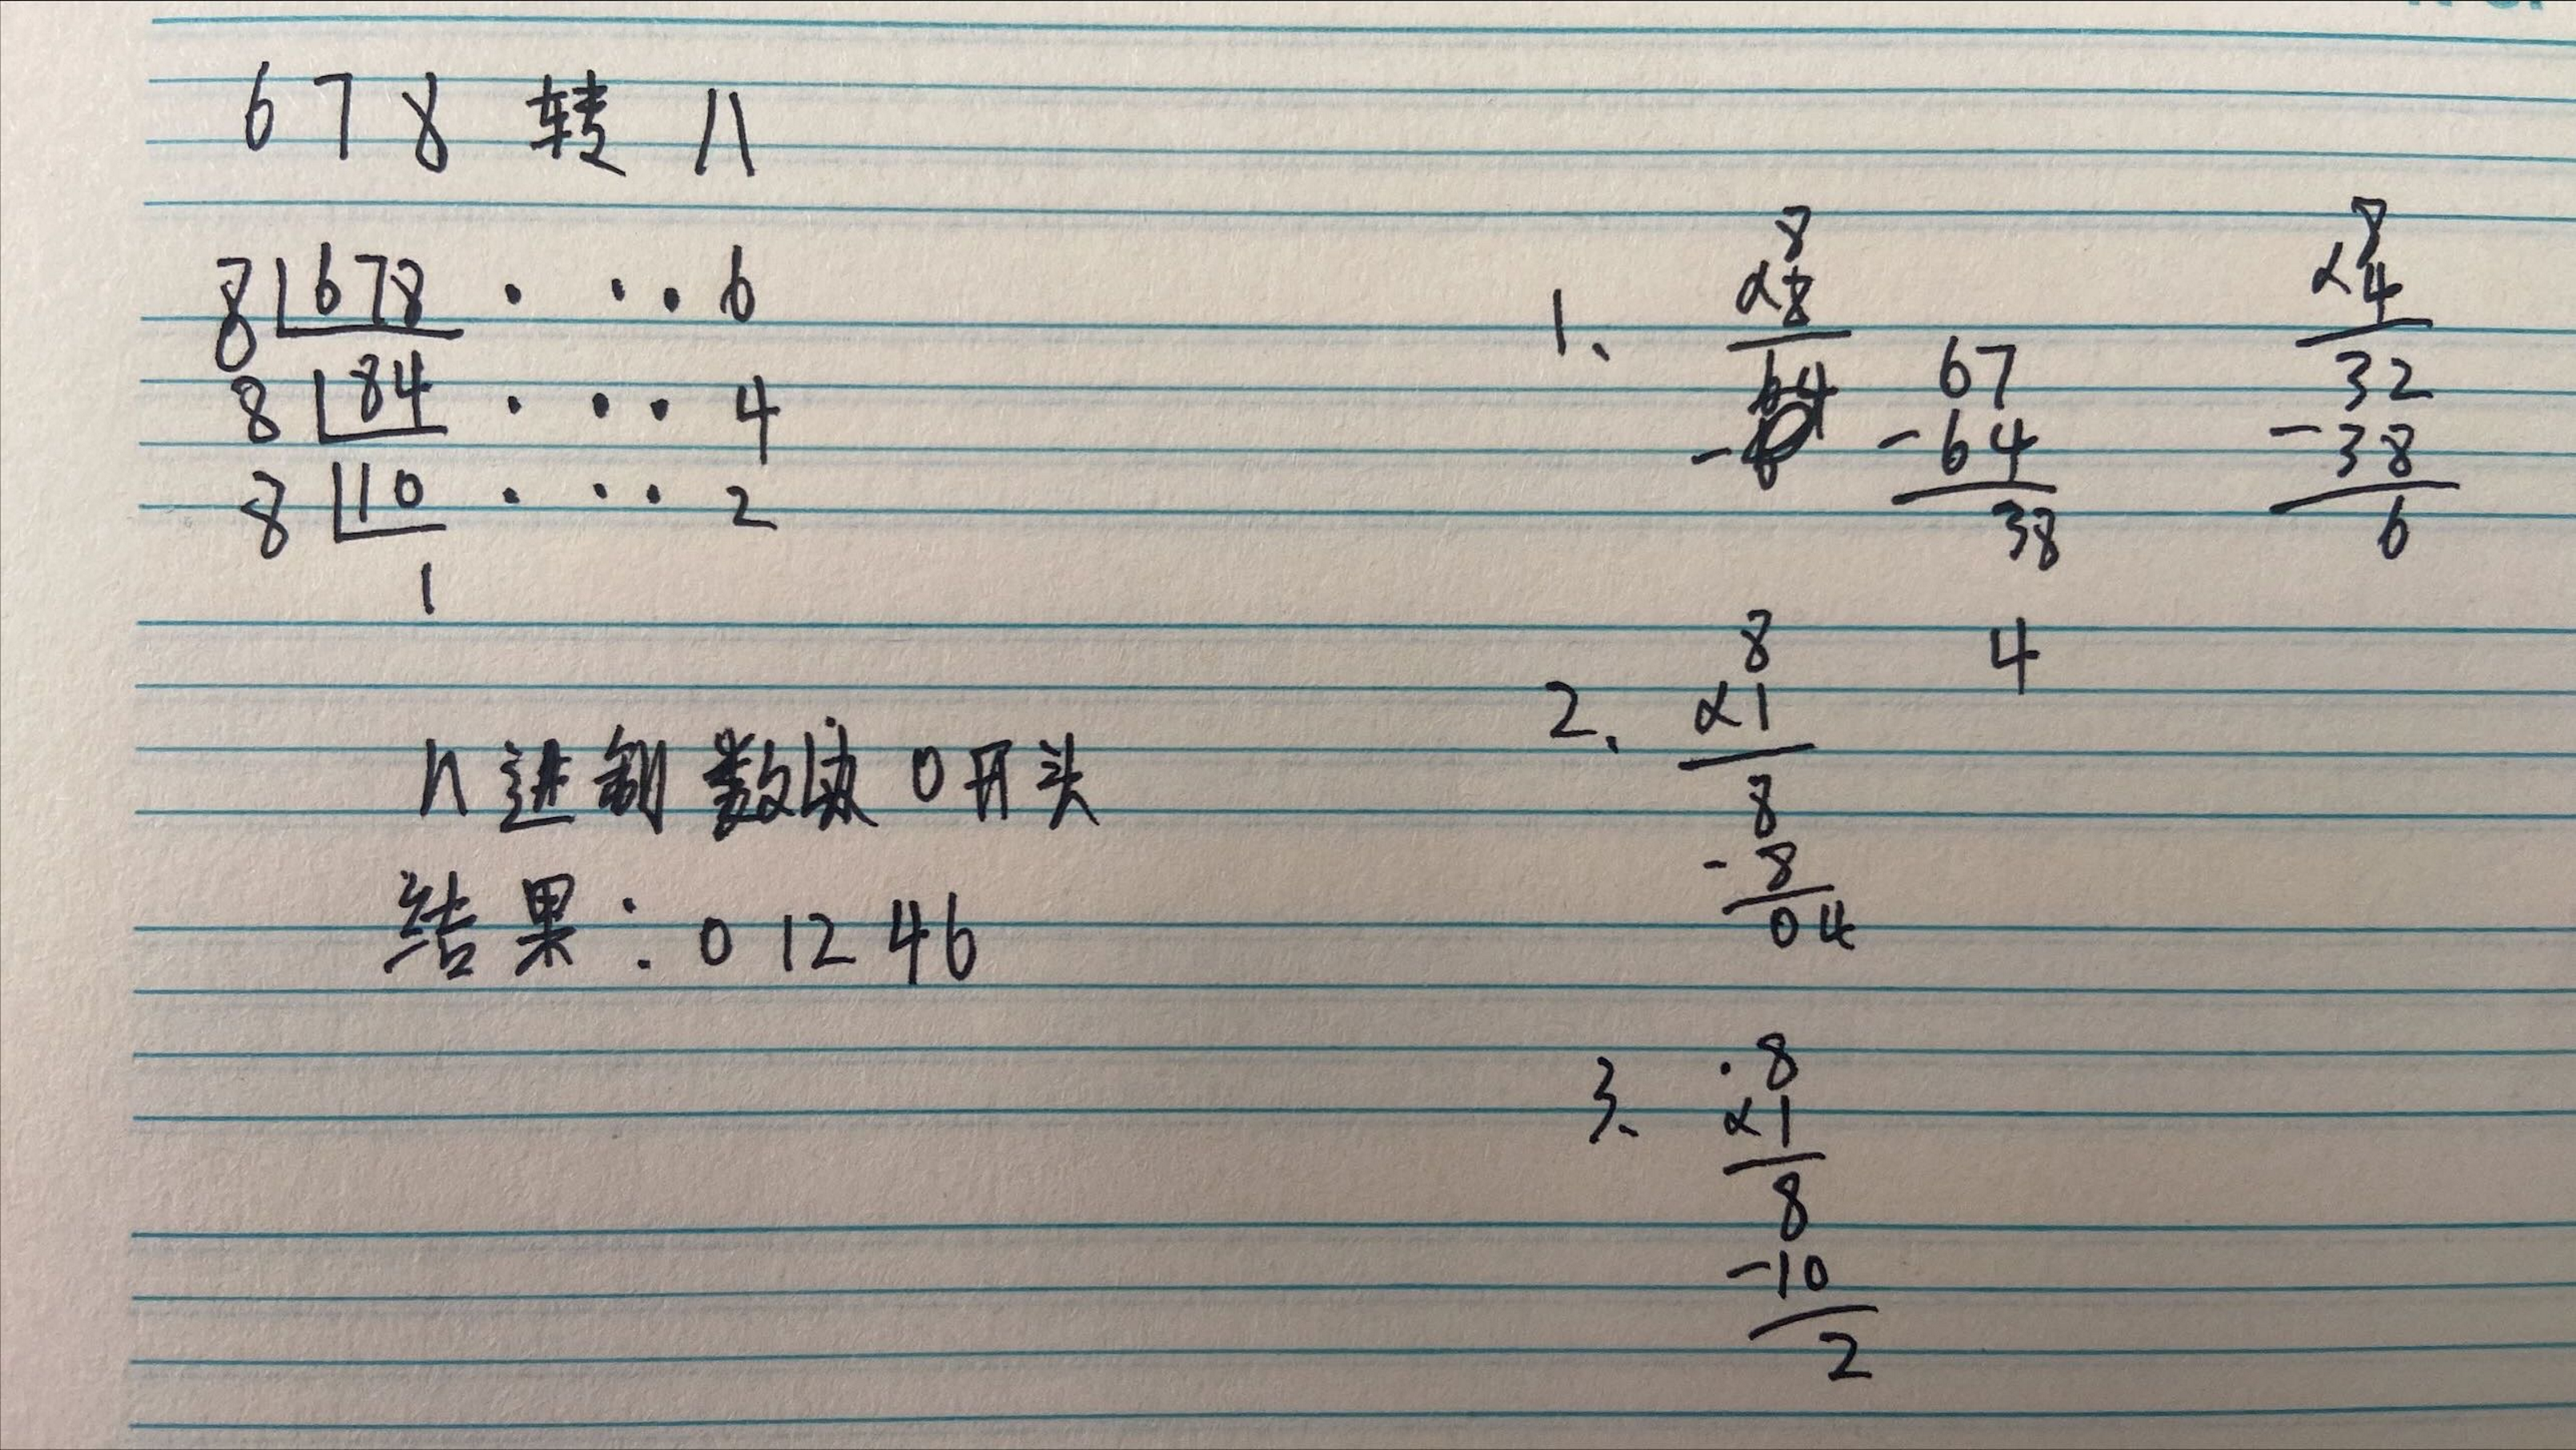 678 转 八
8 678 · · · 6
8 84 · · · 4
8 10 · · · 2
1
八进制数以0开头
结果：01246
1、
8
×8
64
67
-64
38
8
×4
32
-38
6
2、
8
×1
8
-8
04
4
3、
·8
×1
8
-10
2